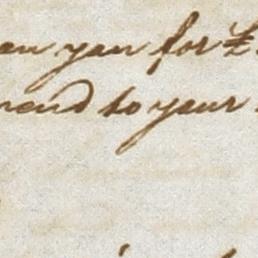 an you for £
mend to your